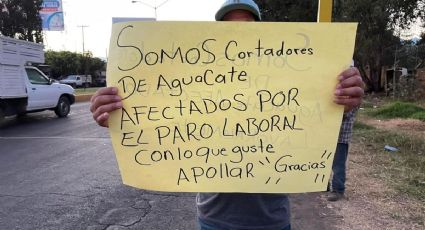 SOMOS Cortadores
DE AguaCate
AFECTADOS POR
EL PARO LABORAL
Con lo que guste
APOLLAR "Gracias"